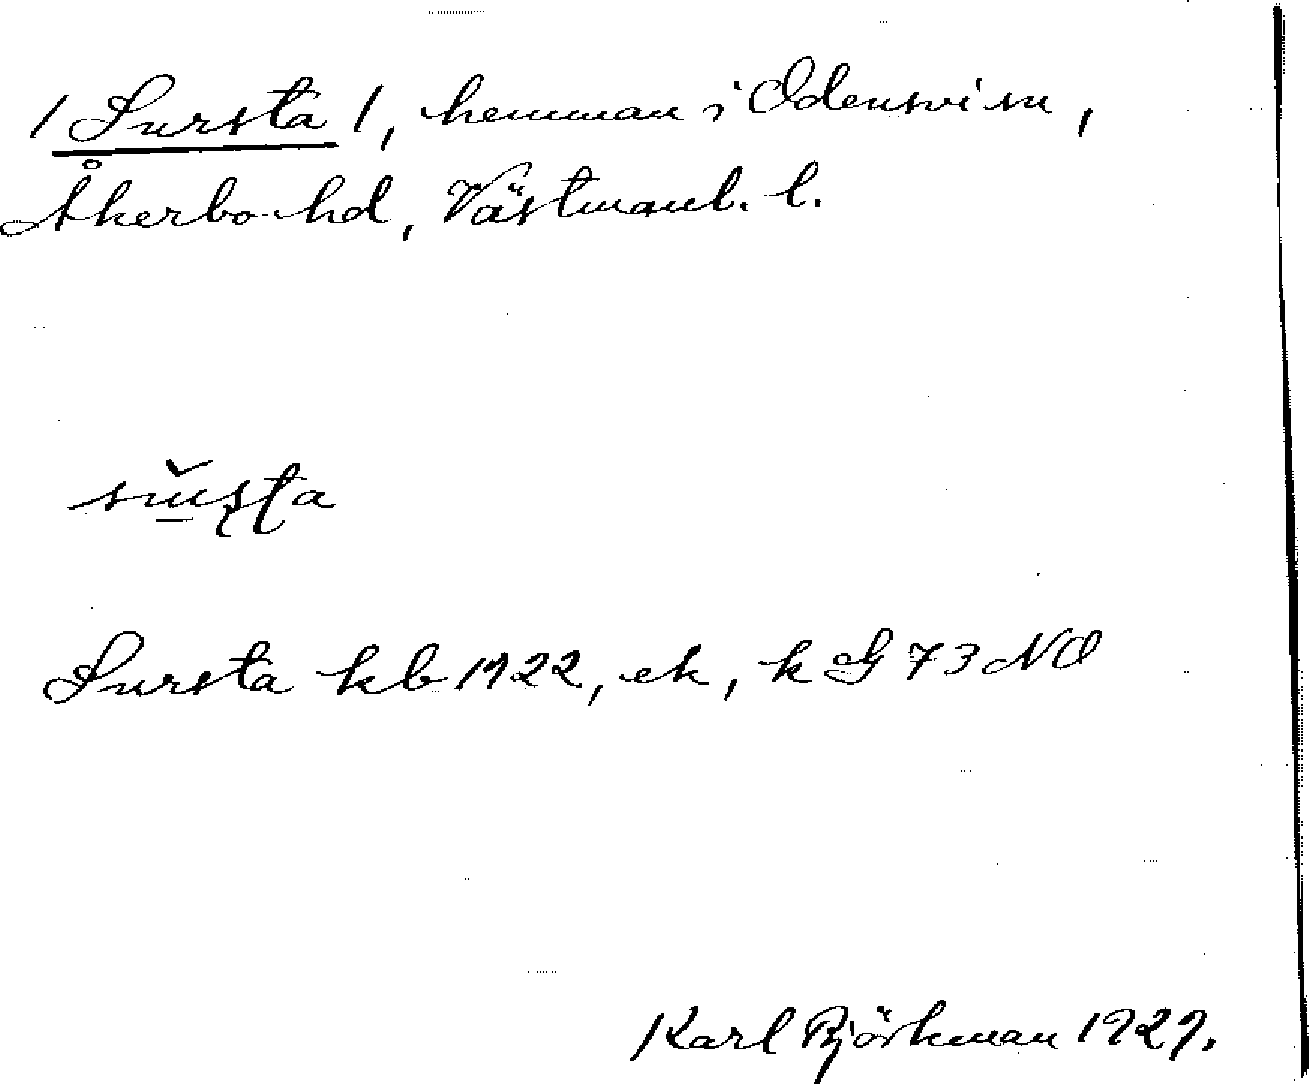 / Sursta /, hemman i Odensvi sn,
Åkerbo hd, Västmanl. l.
sŭs̨ţa
Sursta kb 1922, ek, k G 73 NO
Karl Björkman 1929.